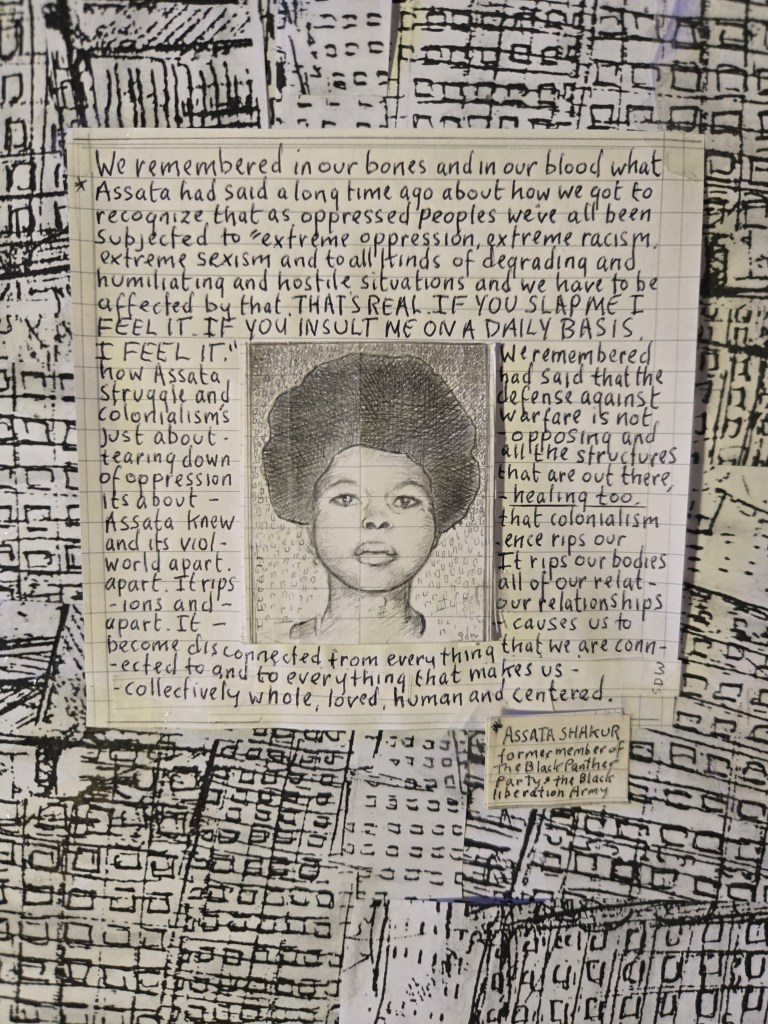 We remembered in our bones and in our blood what
* Assata had said a long time ago about how we got to
recognize that as oppressed peoples we've all been
subjected to "extreme oppression, extreme racism,
extreme sexism and to all kinds of degrading and
humiliating and hostile situations and we have to be
affected by that. THAT'S REAL. IF YOU SLAP ME I
FEEL IT. IF YOU INSULT ME ON A DAILY BASIS,
I FEEL IT." We remembered
how Assata had said that the
struggle and defense against
colonialism's warfare is not
just about - opposing and
tearing down all the structures
of oppression that are out there,
its about - - healing too.
Assata knew that colonialism
and its viol- -ence rips our
world apart. It rips our bodies
apart. It rips all of our relat-
-ions and - our relationships
apart. It - - causes us to
become disconnected from everything that we are conn-
-ected to and to everything that makes us -
-collectively whole, loved, human and centered.
sdw
SDW
* ASSATA SHAKUR
former member of
the Black Panther
Party & the Black
liberation Army